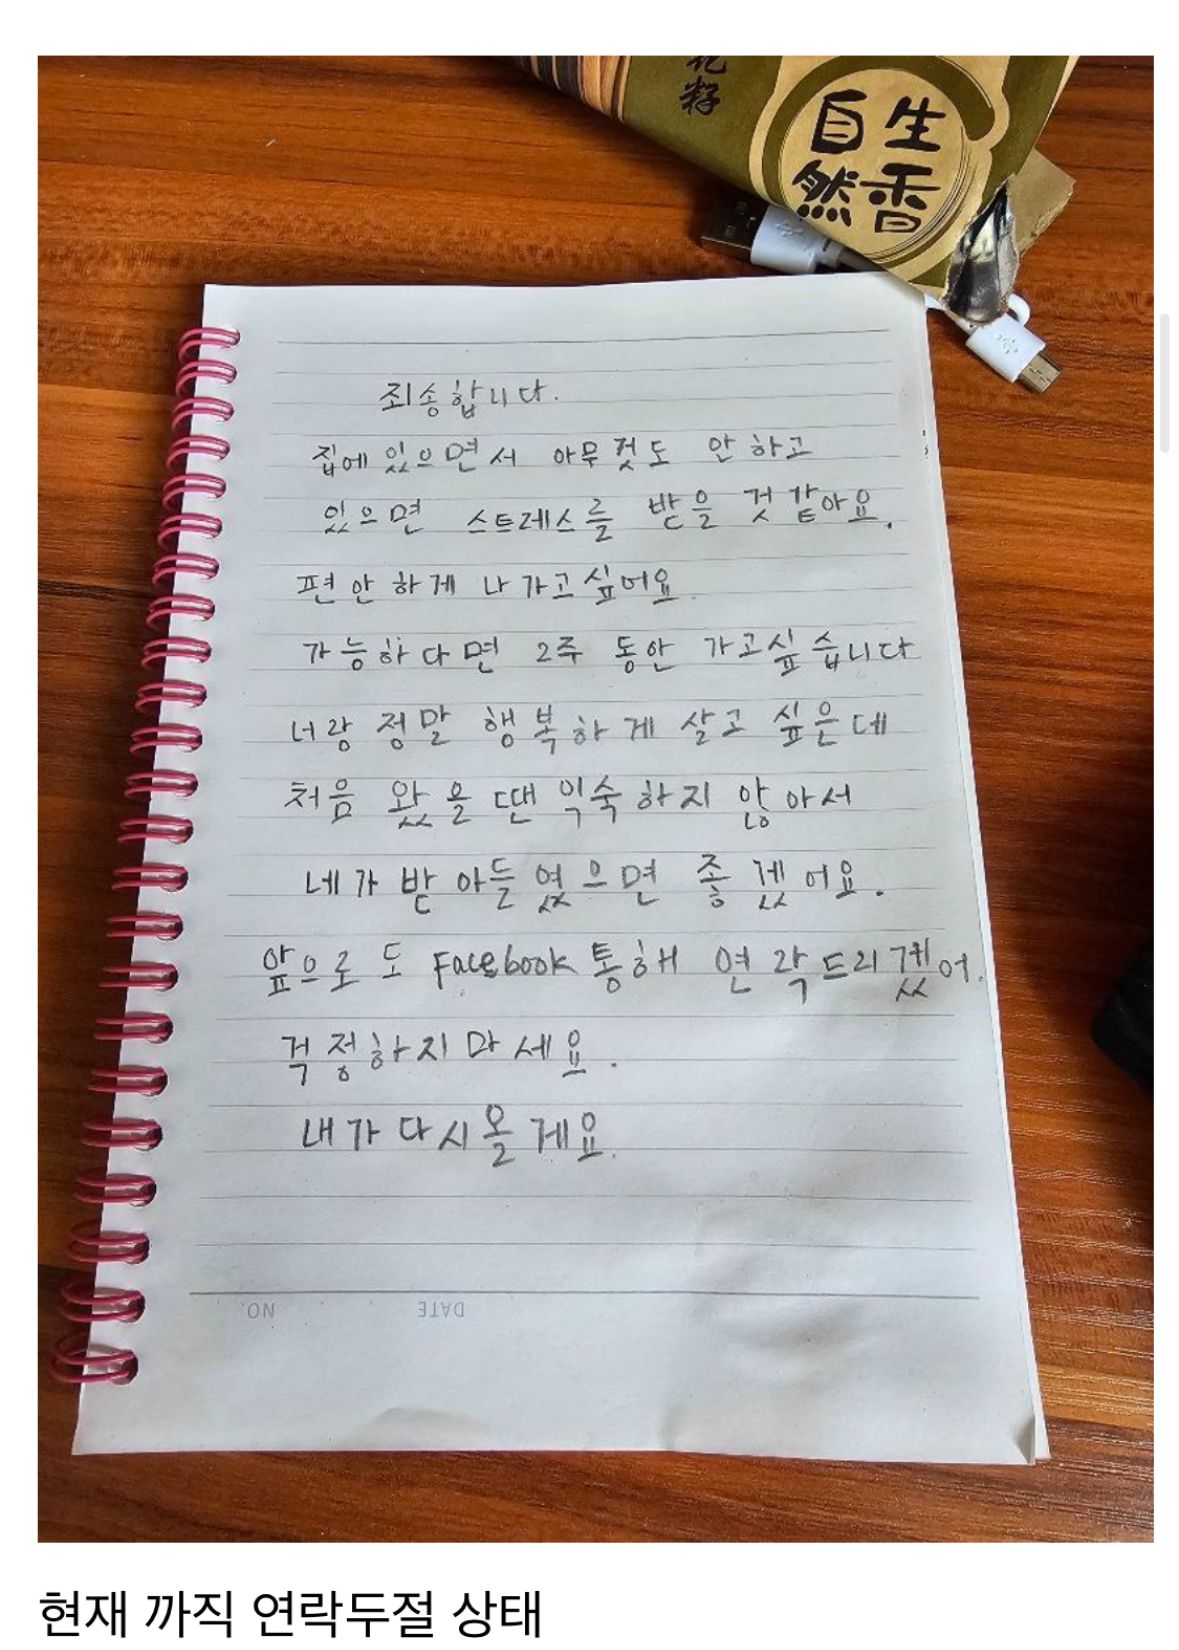 花
籽
自生
然香
죄송합니다.
집에 있으면서 아무것도 안 하고
있으면 스트레스를 받을 것 같아요.
편안하게 나가고싶어요.
가능하다면 2주 동안 가고싶습니다
너랑 정말 행복하게 살고 싶은데
처음 왔을 땐 익숙하지 않아서
네가 받아들였으면 좋겠어요.
앞으로도 Facebook 통해 연락드리겠어.
걱정하지마세요.
내가 다시올게요.
NO.
DATE
현재 까직 연락두절 상태